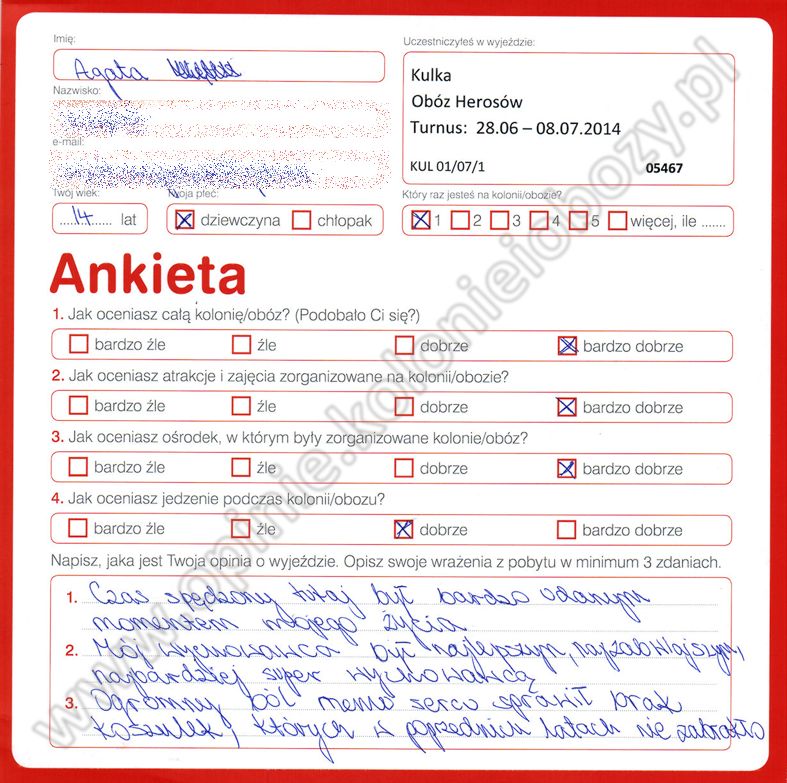 Imię:
Uczestniczyłeś w wyjeździe:
Agata
Kulka
Obóz Herosów
Turnus: 28.06 – 08.07.2014
KUL 01/07/1 05467
Nazwisko:
e-mail:
Twój wiek:
Twoja płeć:
Który raz jesteś na kolonii/obozie?
14 lat
dziewczyna chłopak
1 2 3 4 5 więcej, ile .......
Ankieta
1. Jak oceniasz całą kolonię/obóz? (Podobało Ci się?)
bardzo źle źle dobrze bardzo dobrze
2. Jak oceniasz atrakcje i zajęcia zorganizowane na kolonii/obozie?
bardzo źle źle dobrze bardzo dobrze
3. Jak oceniasz ośrodek, w którym były zorganizowane kolonie/obóz?
bardzo źle źle dobrze bardzo dobrze
4. Jak oceniasz jedzenie podczas kolonii/obozu?
bardzo źle źle dobrze bardzo dobrze
Napisz, jaka jest Twoja opinia o wyjeździe. Opisz swoje wrażenia z pobytu w minimum 3 zdaniach.
1. Czas spędzony tutaj był bardzo udanym
momentem mojego życia
2. Mój wychowawca był najlepszym, najzabawniejszym,
najbardziej super wychowawcą
3. Ogromny ból memu sercu sprawił brak
koszulek, których w poprzednich latach nie zabrakło
www.opinie.kolonieiobozy.pl